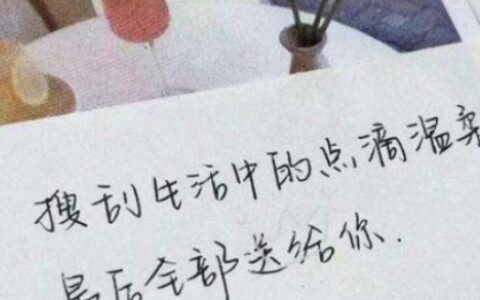 搜刮生活中的点滴温柔
最后全部送给你.